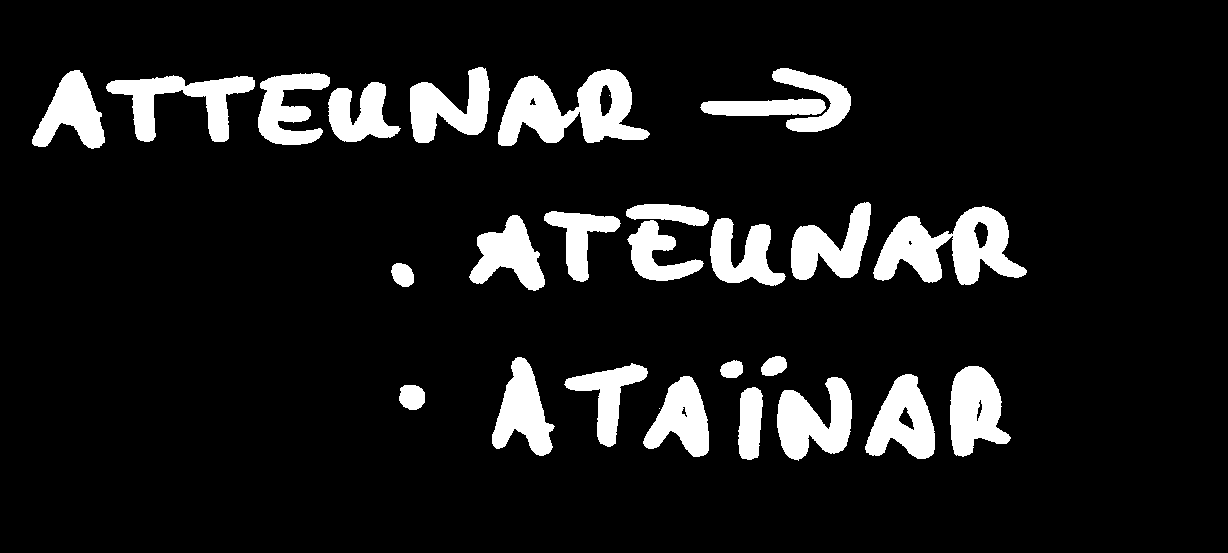 ATTEUNAR →
. ATEUNAR
. ATAÏNAR